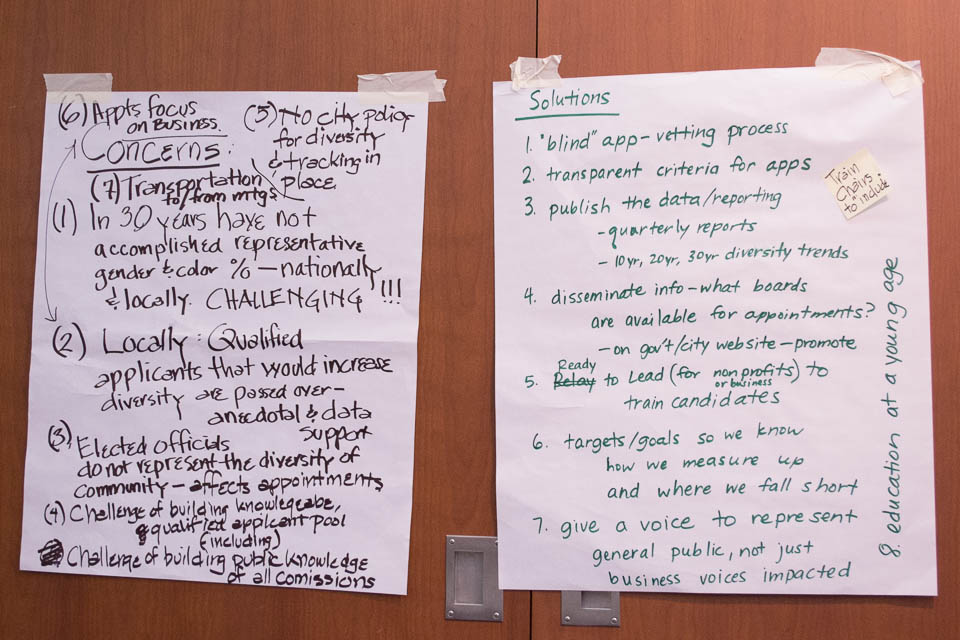 (6) Appts focus
on Business.
(5) No city policy
for diversity
& tracking in
place.
Concerns:
(7) Transportation
to/from mtgs
(1) In 30 years have not
accomplished representative
gender & color % — nationally
& locally. CHALLENGING !!!
(2) Locally: Qualified
applicants that would increase
diversity are passed over—
anecdotal & data
support
(3) Elected officials
do not represent the diversity of
community — affects appointments
(4) Challenge of building knowlegeabe,
& qualified applicant pool
(including)
Challenge of building public knowledge
of all comissions
Solutions
1. "blind" app-vetting process
2. transparent criteria for apps
3. publish the data/reporting
- quarterly reports
- 10yr, 20yr, 30yr diversity trends
4. disseminate info - what boards
are available for appointments?
- on gov't/city website - promote
Ready
5. Relay to Lead (for nonprofits) to
or business
train candidates
6. targets/goals so we know
how we measure up
and where we fall short
7. give a voice to represent
general public, not just
business voices impacted
8. education at a young age
Train
Chairs
to "include"